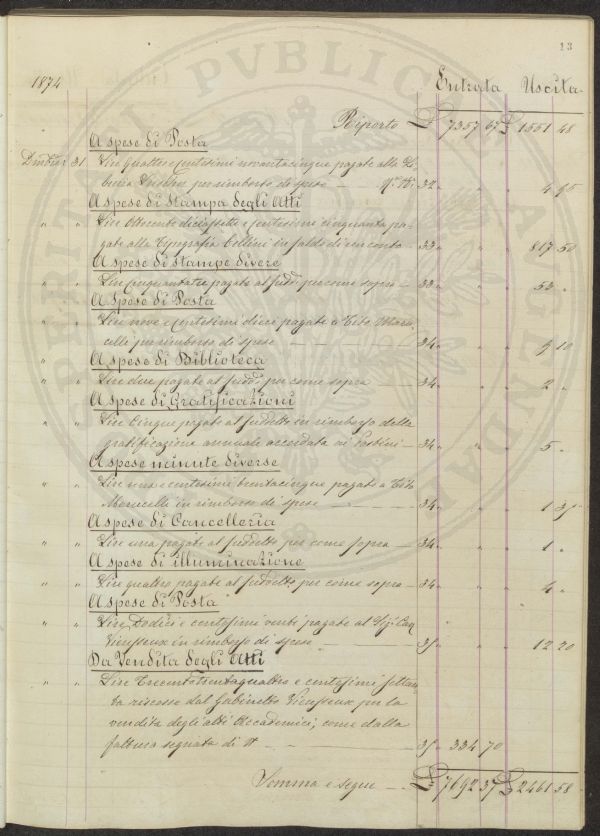 23
1874 Entrata Uscita
Riporto L 7357 67 L 1551 48
A spese di Posta
Dicembre 31 Lire Quattro e centesimi novantacinque pagate alla Li-
breria per rimborso di spese — N.° 32 " " 4 95
A spese di Stampa degli Atti
" " Lire Ottocento diciassette e centesimi cinquanta pa-
gate alla Tipografia Cellini in saldo di un conto — 33 " " 817 50
A spese di Stampe divere
" " Lire Cinquantatre pagate al sudd. per come sopra — 33 " " 53 "
A spese di Posta
" " Lire nove e centesimi dieci pagate a Tito Maru-
celli per rimborso di spese — 34 " " 9 10
A spese di Biblioteca
" " Lire due pagate al sudd. per come sopra — 34 " " 2 "
A spese di Gratificazioni
" " Lire Cinque pagate al suddetto in rimborso della
gratificazione annuale accordata ai Postini — 34 " " 5 "
A spese minute diverse
" " Lire una e centesimi trentacinque pagate a Tito
Marucelli in rimborso di spese — 34 " " 1 35
A spese di Cancelleria
" " Lire una pagate al suddetto per come sopra — 34 " " 1 "
A spese di illuminazione
" " Lire quattro pagate al suddetto per come sopra — 34 " " 4 "
A spese di Posta
" " Lire Dodici e centesimi venti pagate al Sig. Cav.
Vieusseux in rimborso di spese — 35 " " 12 20
Da Vendita degli Atti
" " Lire Trecentotrentaquattro e centesimi settan-
ta riscosse dal Gabinetto Vieusseux per la
vendita degli atti Accademici, come dalla
fattura segnata di N — 35 " 334 70
Somma e segue — L 7692 37 L 2461 58
PERITATI PVBLICAE AVGENDAE